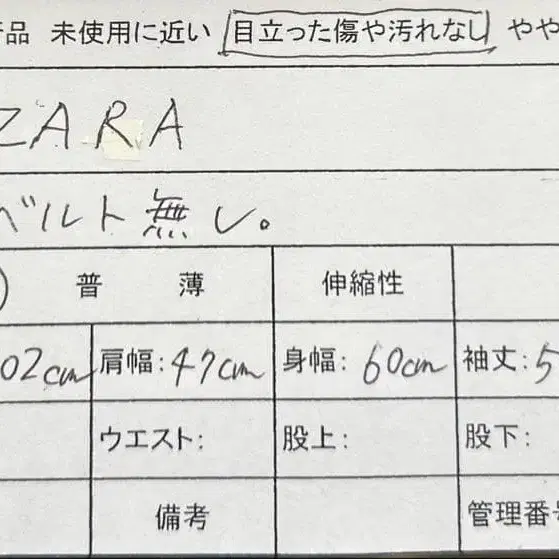 品 未使用に近い 目立った傷や汚れなし やや
ZARA
ベルト無し。
普 薄 伸縮性
02cm 肩幅:47cm 身幅:60cm 袖丈:5
ウエスト: 股上: 股下:
備考 管理番号